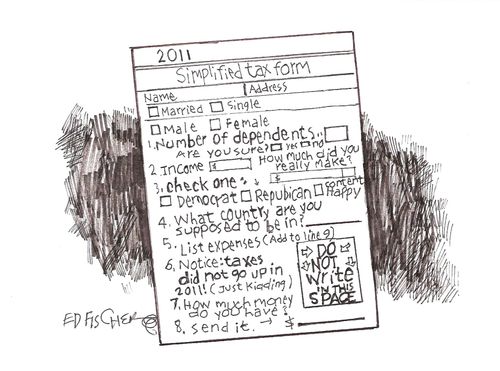 2011
Simplified tax form
Name Address
Married Single
Male Female
1. Number of dependents..
Are you sure? yes no
2. Income $ How much did you really make? $
3. check one:
Democrat Republican content Happy
4. What country are you
supposed to be in?
5. List expenses (Add to line 9)
6. Notice: taxes
did not go up in
2011! (Just kidding)
7. How much money
do you have?
8. send it. → $
DO
NOT
Write
IN THIS
SPACE
ED FISCHER